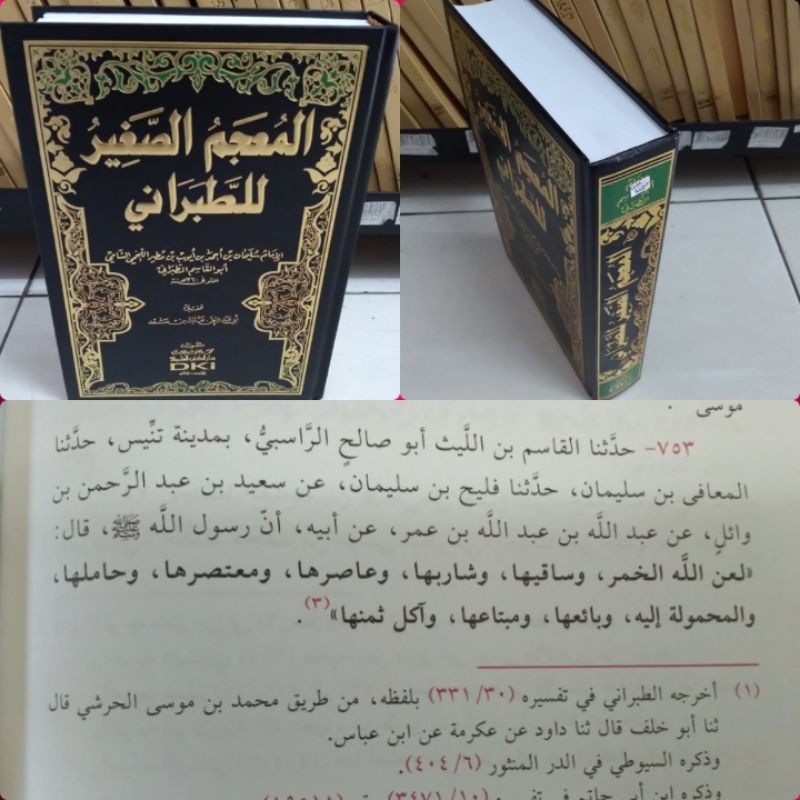 المعجم الصغير
للطبراني
الإمام سليمان بن أحمد بن أيوب بن مطير اللخمي الشامي
أبو القاسم الطبراني
DKi
المعجم الصغير للطبراني
موسى .
٧٥٣- حدَّثنا القاسم بن اللَّيث أبو صالحٍ الرَّاسبيُّ، بمدينة تنِّيس، حدَّثنا
المعافى بن سليمان، حدَّثنا فليح بن سليمان، عن سعيد بن عبد الرَّحمن بن
وائلٍ، عن عبد الله بن عبد الله بن عمر، عن أبيه، أنّ رسول الله ﷺ، قال:
«لعن الله الخمر، وساقيها، وشاربها، وعاصرها، ومعتصرها، وحاملها،
والمحمولة إليه، وبائعها، ومبتاعها، وآكل ثمنها»(٣).
(١) أخرجه الطبراني في تفسيره (٣٣١/٣٠) بلفظه، من طريق محمد بن موسى الحرشي قال
ثنا أبو خلف قال ثنا داود عن عكرمة عن ابن عباس.
وذكره السيوطي في الدر المنثور (٤٠٤/٦).
وذكره ابن أبي حاتم في تفسيره (٣٤٧١/١٠)